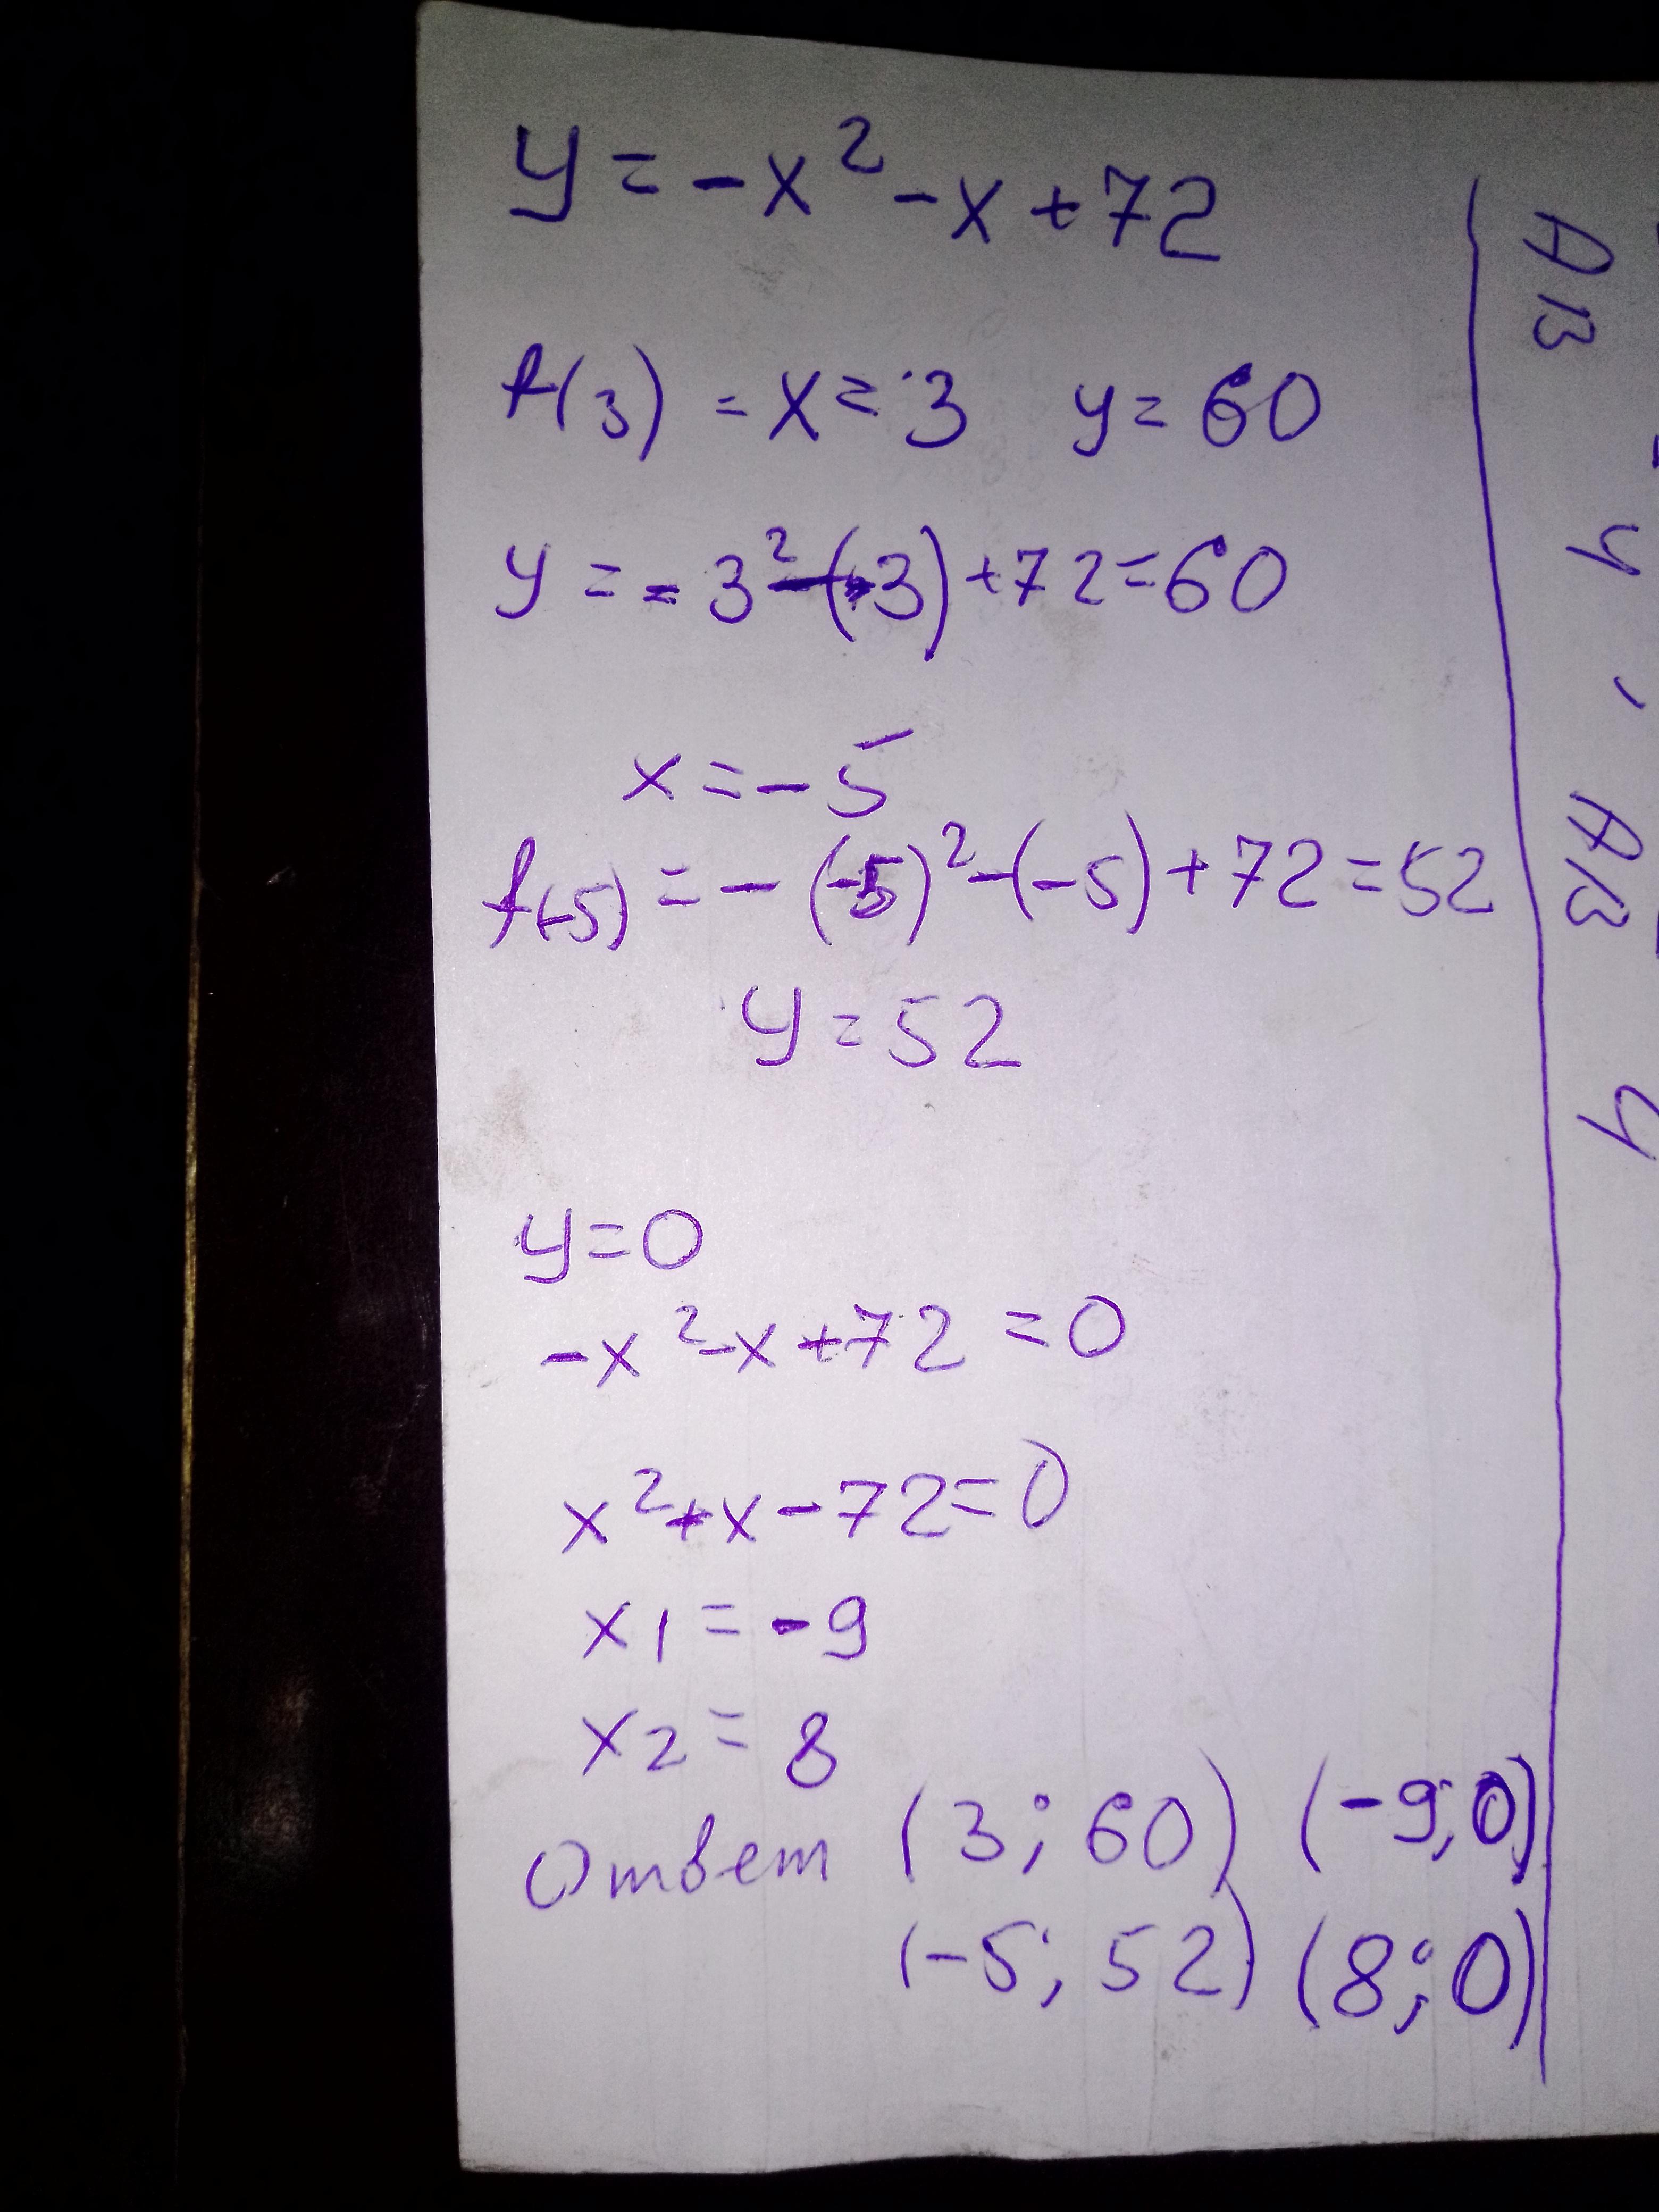 y = -x² - x + 72
f(3) = x = 3 y = 60
y = -3² - (+3) + 72 = 60
x = -5
f(-5) = -(-5)² - (-5) + 72 = 52
y = 52
y = 0
-x² - x + 72 = 0
x² + x - 72 = 0
x1 = -9
x2 = 8
Ответ (3; 60) (-9; 0)
(-5; 52) (8; 0)
AB
y
AB
y